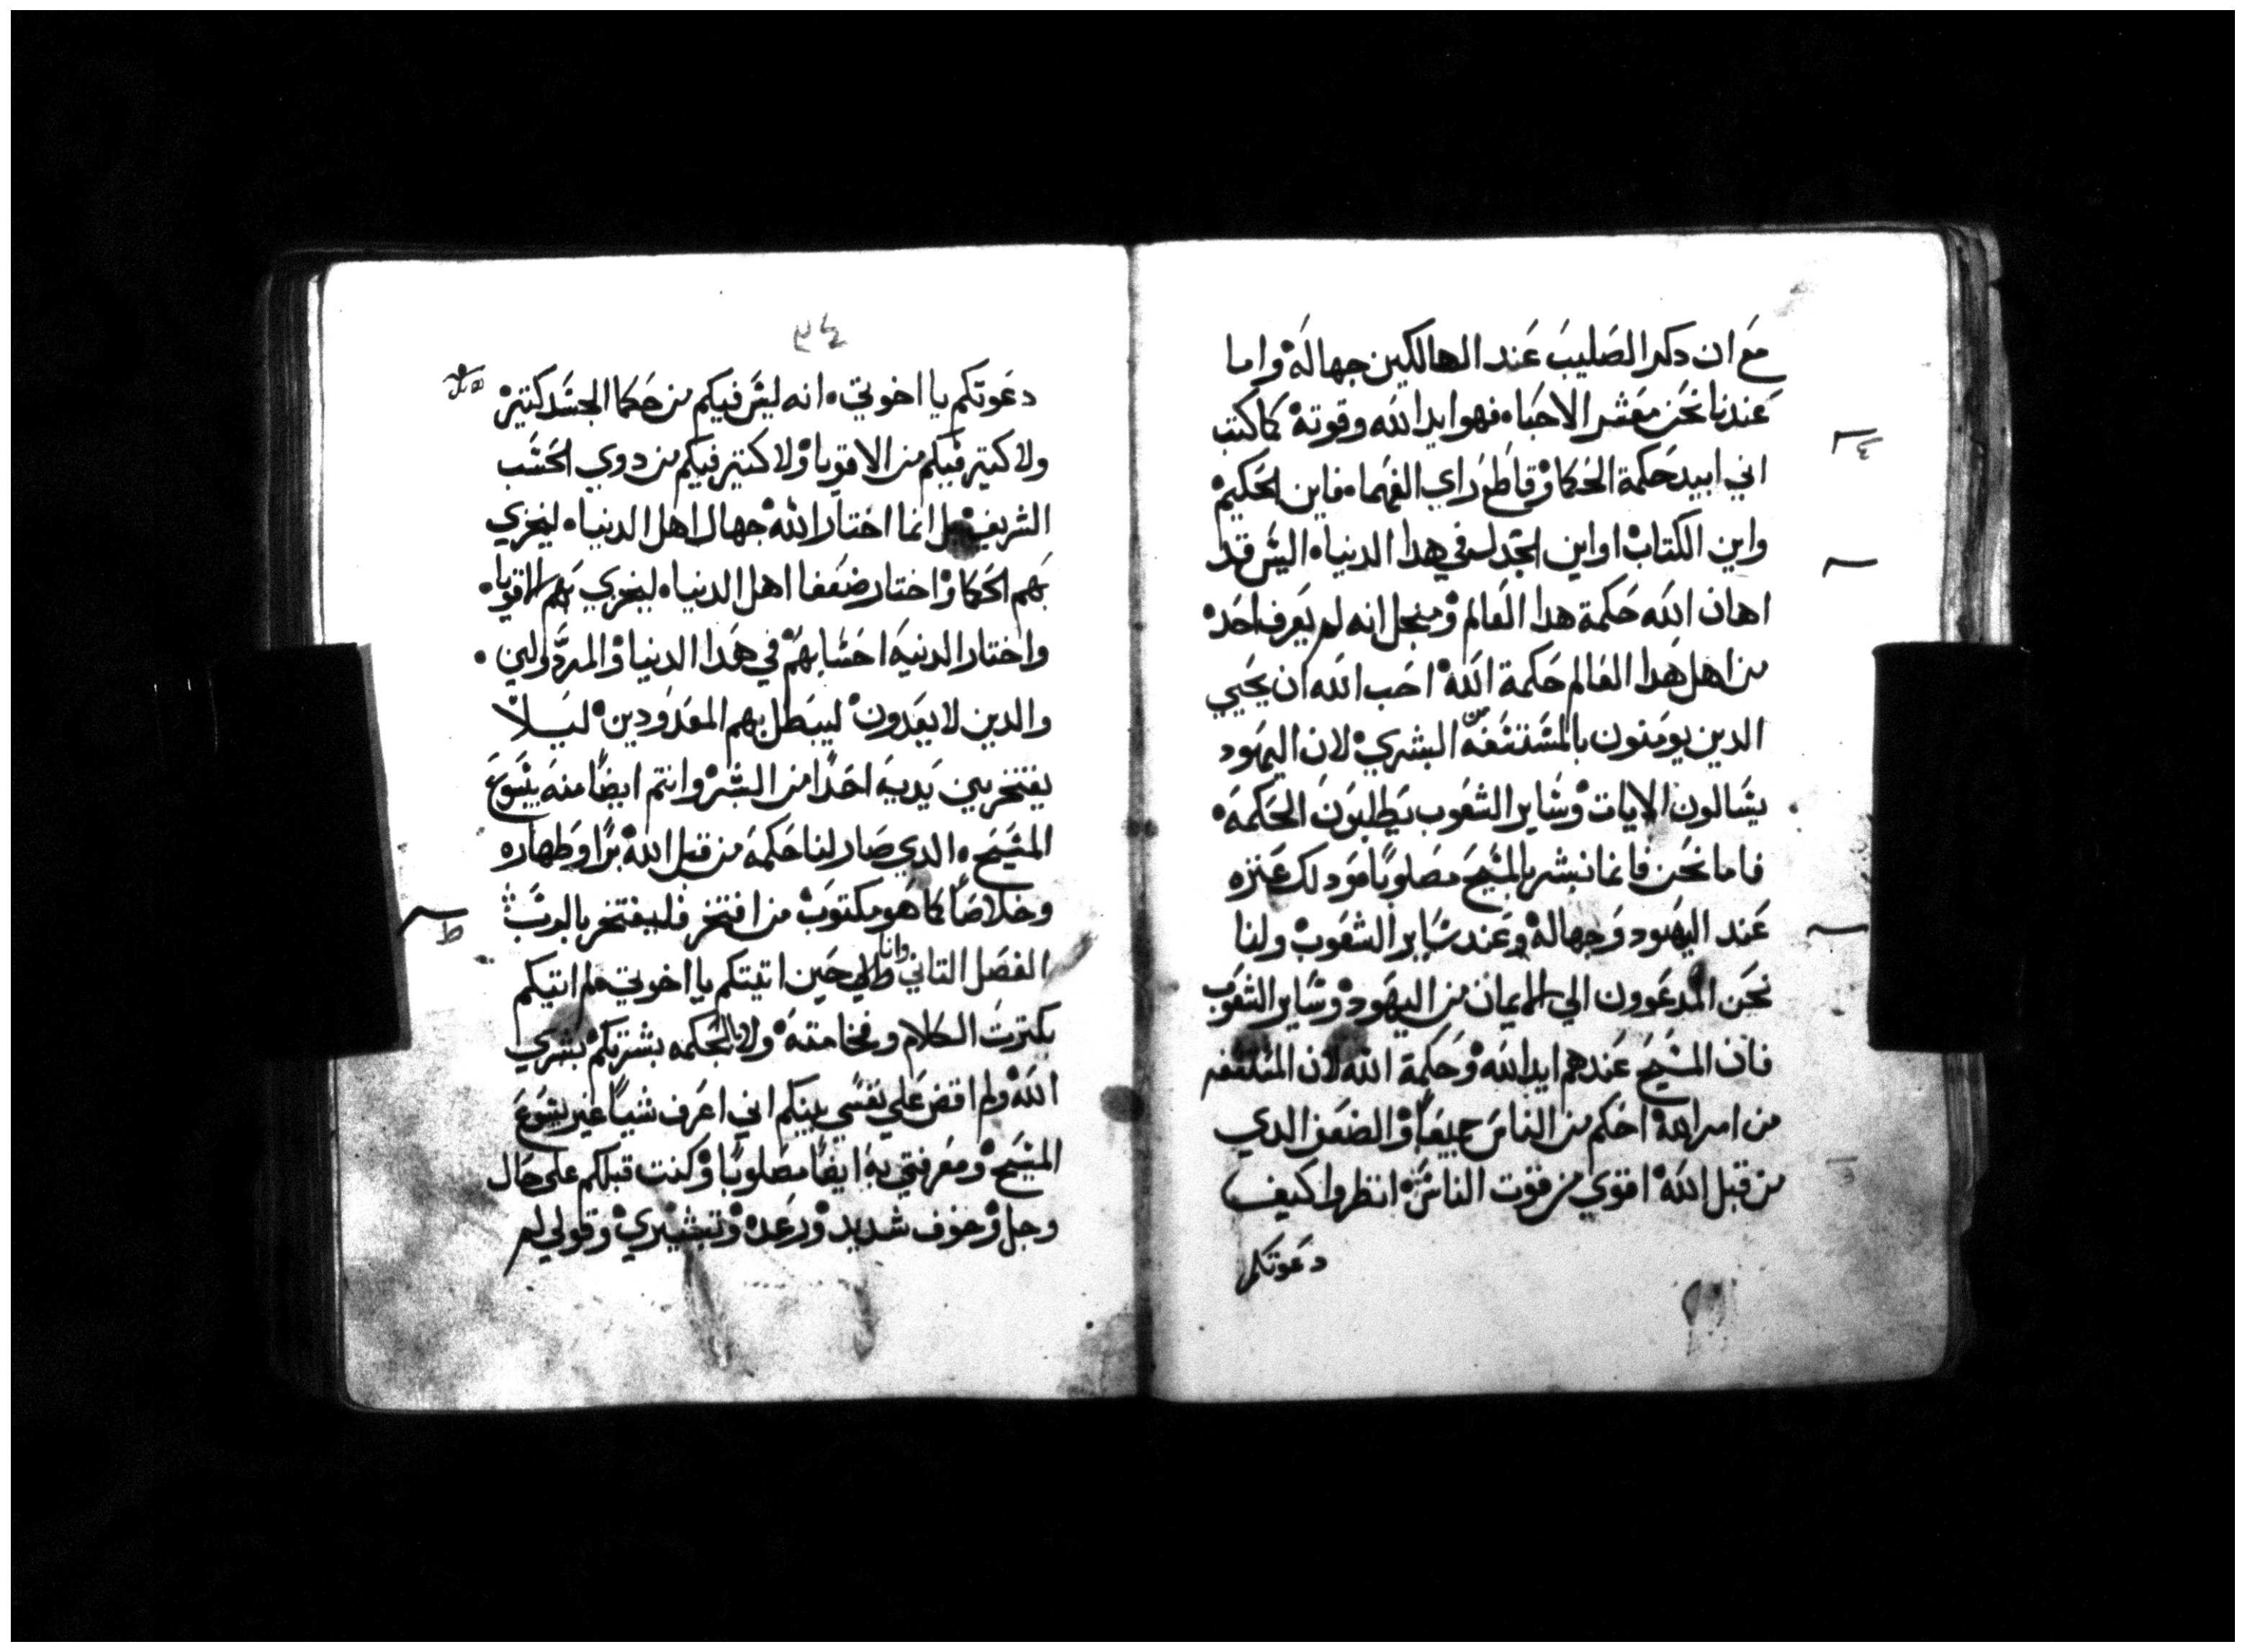 مع ان دكر الصليب عند الهالكين جهاله واما
عندنا نحن معشر الاحبا فهو ايد الله وقوته كما كتب
اني ابيد حكمة الحكما وقاطع راي الفهما فاين الحكيم
واين الكتاب او اين الجدل في هدا الدنيا اليس قد
اهان الله حكمة هدا العالم ومنجل انه لم يعرف احد
من اهل هدا العالم حكمة الله احب الله ان يحيي
الدين يومنون البشري لان اليهود
يسالون الايات وساير الشعوب يطلبون الحكمه
فاما نحن فانما نبشر بالمسيح مصلوبا ودلك عتره
عند اليهود وجهاله وعند ساير الشعوب ولنا
نحن المدعوون الي الايمان من اليهود وساير الشعوب
فان المسيح عندهم ايد الله وحكمة الله لان
من امر الله احكم من الناس جميعا والضعف الدي
من قبل الله اقوي من قوت الناس انظروا كيف
دعوتكم
٣٤
دعوتكم يا اخوتي انه ليس فيكم من حكما الجسد كتير
ولا كتير فيكم من الاقويا ولا كتير فيكم من دوي الحسب
الشريف بل انما اختار الله جهال اهل الدنيا ليخزي
بهم الحكما واختار ضعفا اهل الدنيا ليخزي بهم الاقويا
واختار الدنيه احسابهم في هدا الدنيا والمردولين
والدين لا يعدون ليبطل بهم المعدودين ليلا
يفتخر بين يديه احدا من البشر وانتم ايضا منه بيسوع
المسيح الدي صار لنا حكمه من قبل الله برا وطهاره
وخلاصا كما هو مكتوب من افتخر فليفتخر بالرب
الفصل التاني وانا حين اتيتكم يا اخوتي فلم اتيكم
بكترت الكلام وفخامته ولا بالحكمه بشرتكم بشري
الله ولم اقض علي نفسي بينكم اني اعرف شيا غير يسوع
المسيح ومعرفتي به ايضا مصلوبا وكنت قبلكم علي حال
وجل وخوف شديد ورعده وتبشيري وقولي لم